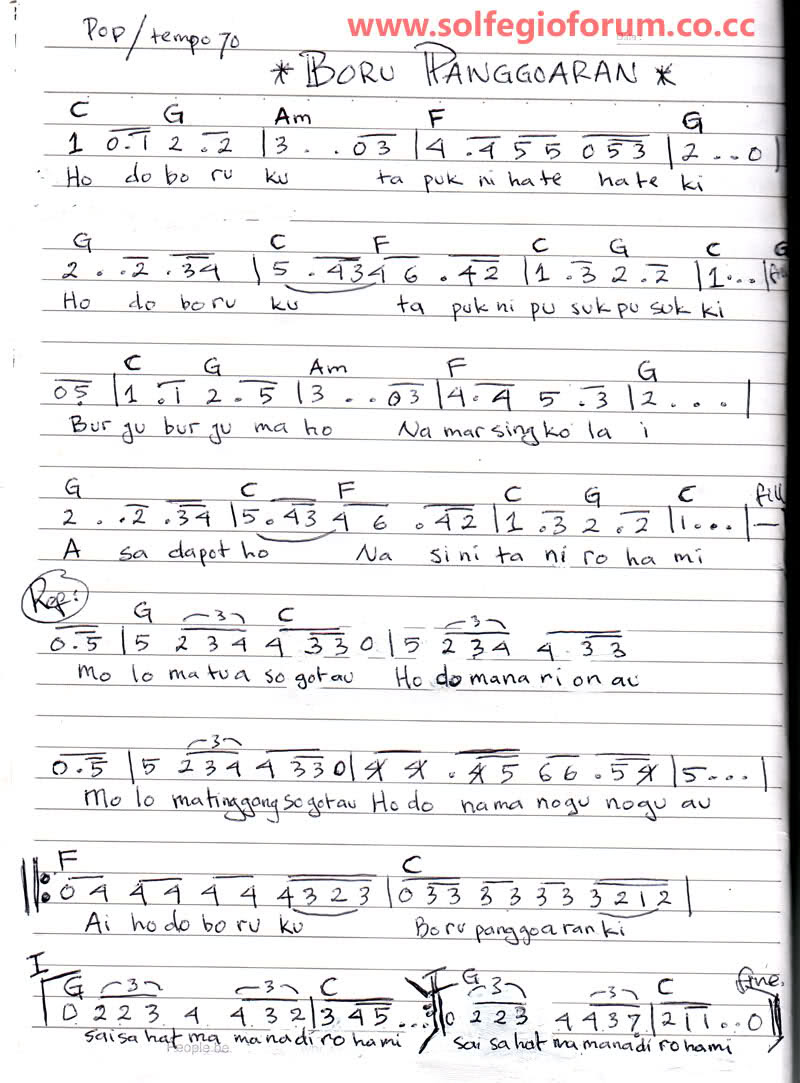 www.solfegioforum.co.cc
Pop/tempo 70
* BORU PANGGOARAN *
C G Am F G
1 0.1 2 .2 | 3 . .03 | 4 .4 55 053 | 2 . . 0 |
Ho do bo ru ku ta puk ni hate hate ki
G C F C G C G
2 . .2 .34 | 5 .43 4 6 .42 | 1 .3 2 .2 | 1 . . . |
Ho do boru ku ta puk ni pu suk pu suk ki
C G Am F G
05 | 1 .1 2 .5 | 3 . .03 | 4.4 5 .3 | 2 . . . |
Bur ju bur ju ma ho Na mar sing ko la i
G C F C G C fill
2 . .2 .34 | 5 .43 4 6 .42 | 1 .3 2 .2 | 1 . . . | — |
A sa dapot ho Na si ni ta ni ro ha mi
Ref:
G 3 C 3
0.5 | 5 234 4 33 0 | 5 234 4.33
Mo lo matua so gotau Ho do mana ri on au
3
0.5 | 5 234 4330 | 4 4 .45 66 .54 | 5 . . . |
Mo lo matinggang so gotau Ho do nama nogu nogu au
F C
||: 04 44 44 4323 | 033 33 33 3212 |
Ai ho do bo ru ku Boru panggoaran ki
I G 3 3 C II G 3 3 C fine.
0 223 4 432 | 345 . . . :|| 0 223 4 437 | 211 . . 0 ||
sai sa hat ma mana di ro hami sai sa hat ma mana di ro hami
People be.